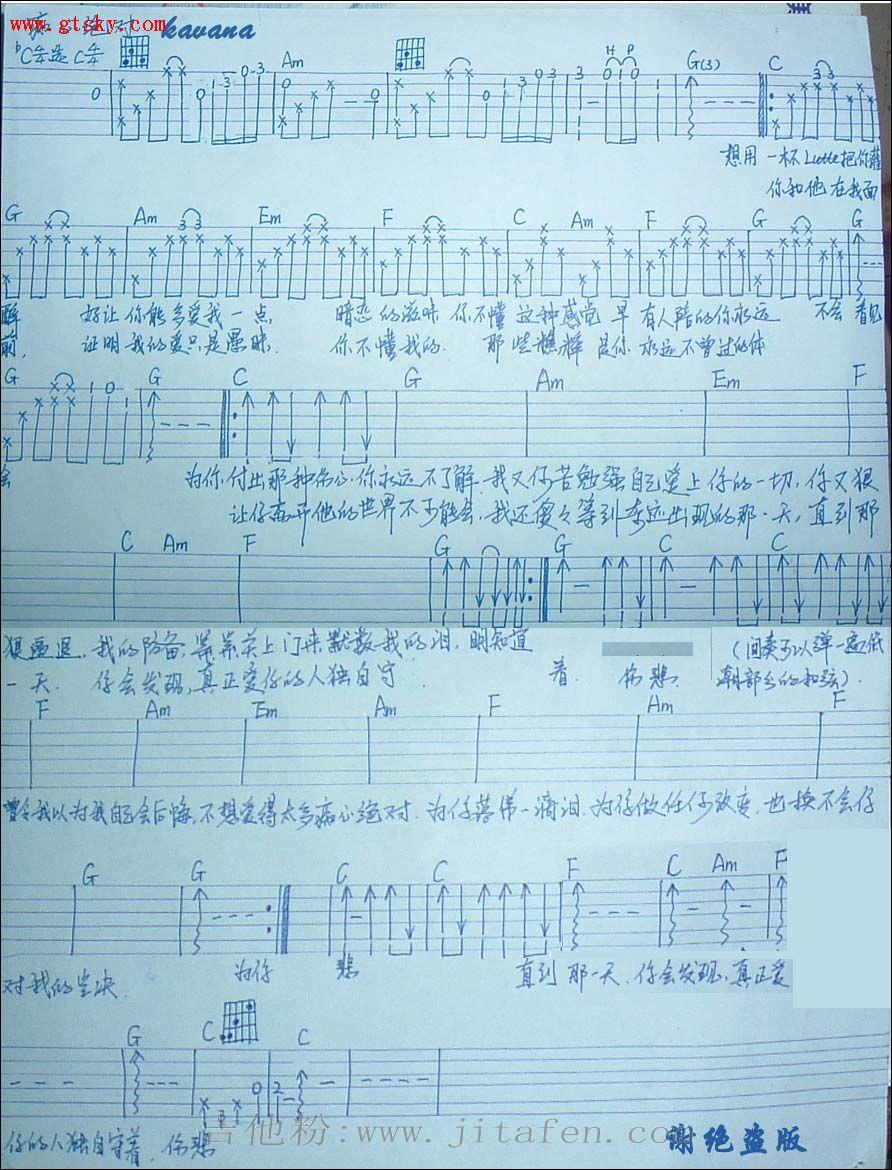 www.gtsky.com kavana
Am G(3) C
H P
想用一杯Latte把你灌
你和他在我面
G Am Em F C Am F G G
醉 好让你能多爱我一点 暗恋的滋味 你不懂 这种感觉 早有人陪的你永远 不会 看见
前, 证明我的爱只是愚昧. 你不懂我的. 那些憔悴 是你 永远不曾过的体
G G C G Am Em F
会 为你,付出那种伤心,你永远不了解.我又何苦勉强自己爱上你的一切,你又狠
让你离开他的世界不可能会.我还傻々等到奇迹出现的那一天,直到那
C Am F G G C C
狠逼退.我的防备,某某关上门来默数我的泪.明知道
一天. 你会发现,真正爱你的人独自守 着. 伤悲. (间奏可以弹一遍低
潮部分的和弦).
F Am Em Am F Am F
曾今我以为我自己会后悔,不想爱得太多痴心绝对.为你落第一滴泪.为你做任何改变.也换不会你
G G C C F C Am F
对我的坚决. 为你 悲 直到那一天.你会发现,真正爱
G C C
你的人独自守着.伤悲
吉他粉:www.jitafen.com
谢绝盗版